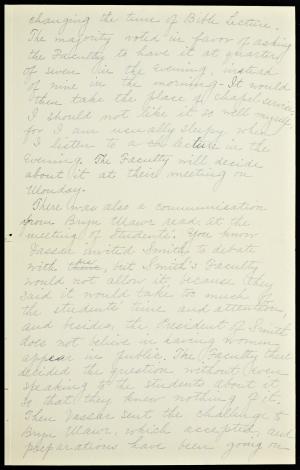 changing the time of Bible Lecture.
The majority voted in favor of asking
the Faculty to have it at quarter
of seven in the evening, instead
of nine in the morning - It would
then take the place of chapel service
I should not like it so well myself,
for I am usually sleepy when
I listen to a lecture in the
evening. The Faculty will decide
about it at their meeting on
Monday.
There was also a communication
from Bryn Mawr read at the
meeting of Students. You know
Vassar invited Smith to debate
with , but Smith's Faculty
would not allow it, because they
said it would take too much of
the students' time and attention,
and besides, the President of Smith
does not believe in having women
appear in public. The Faculty there
decided the question without even
speaking to the students about it,
so that they knew nothing of it.
Then Vassar sent the challenge to
Bryn Mawr, which accepted, and
preparations have been going on